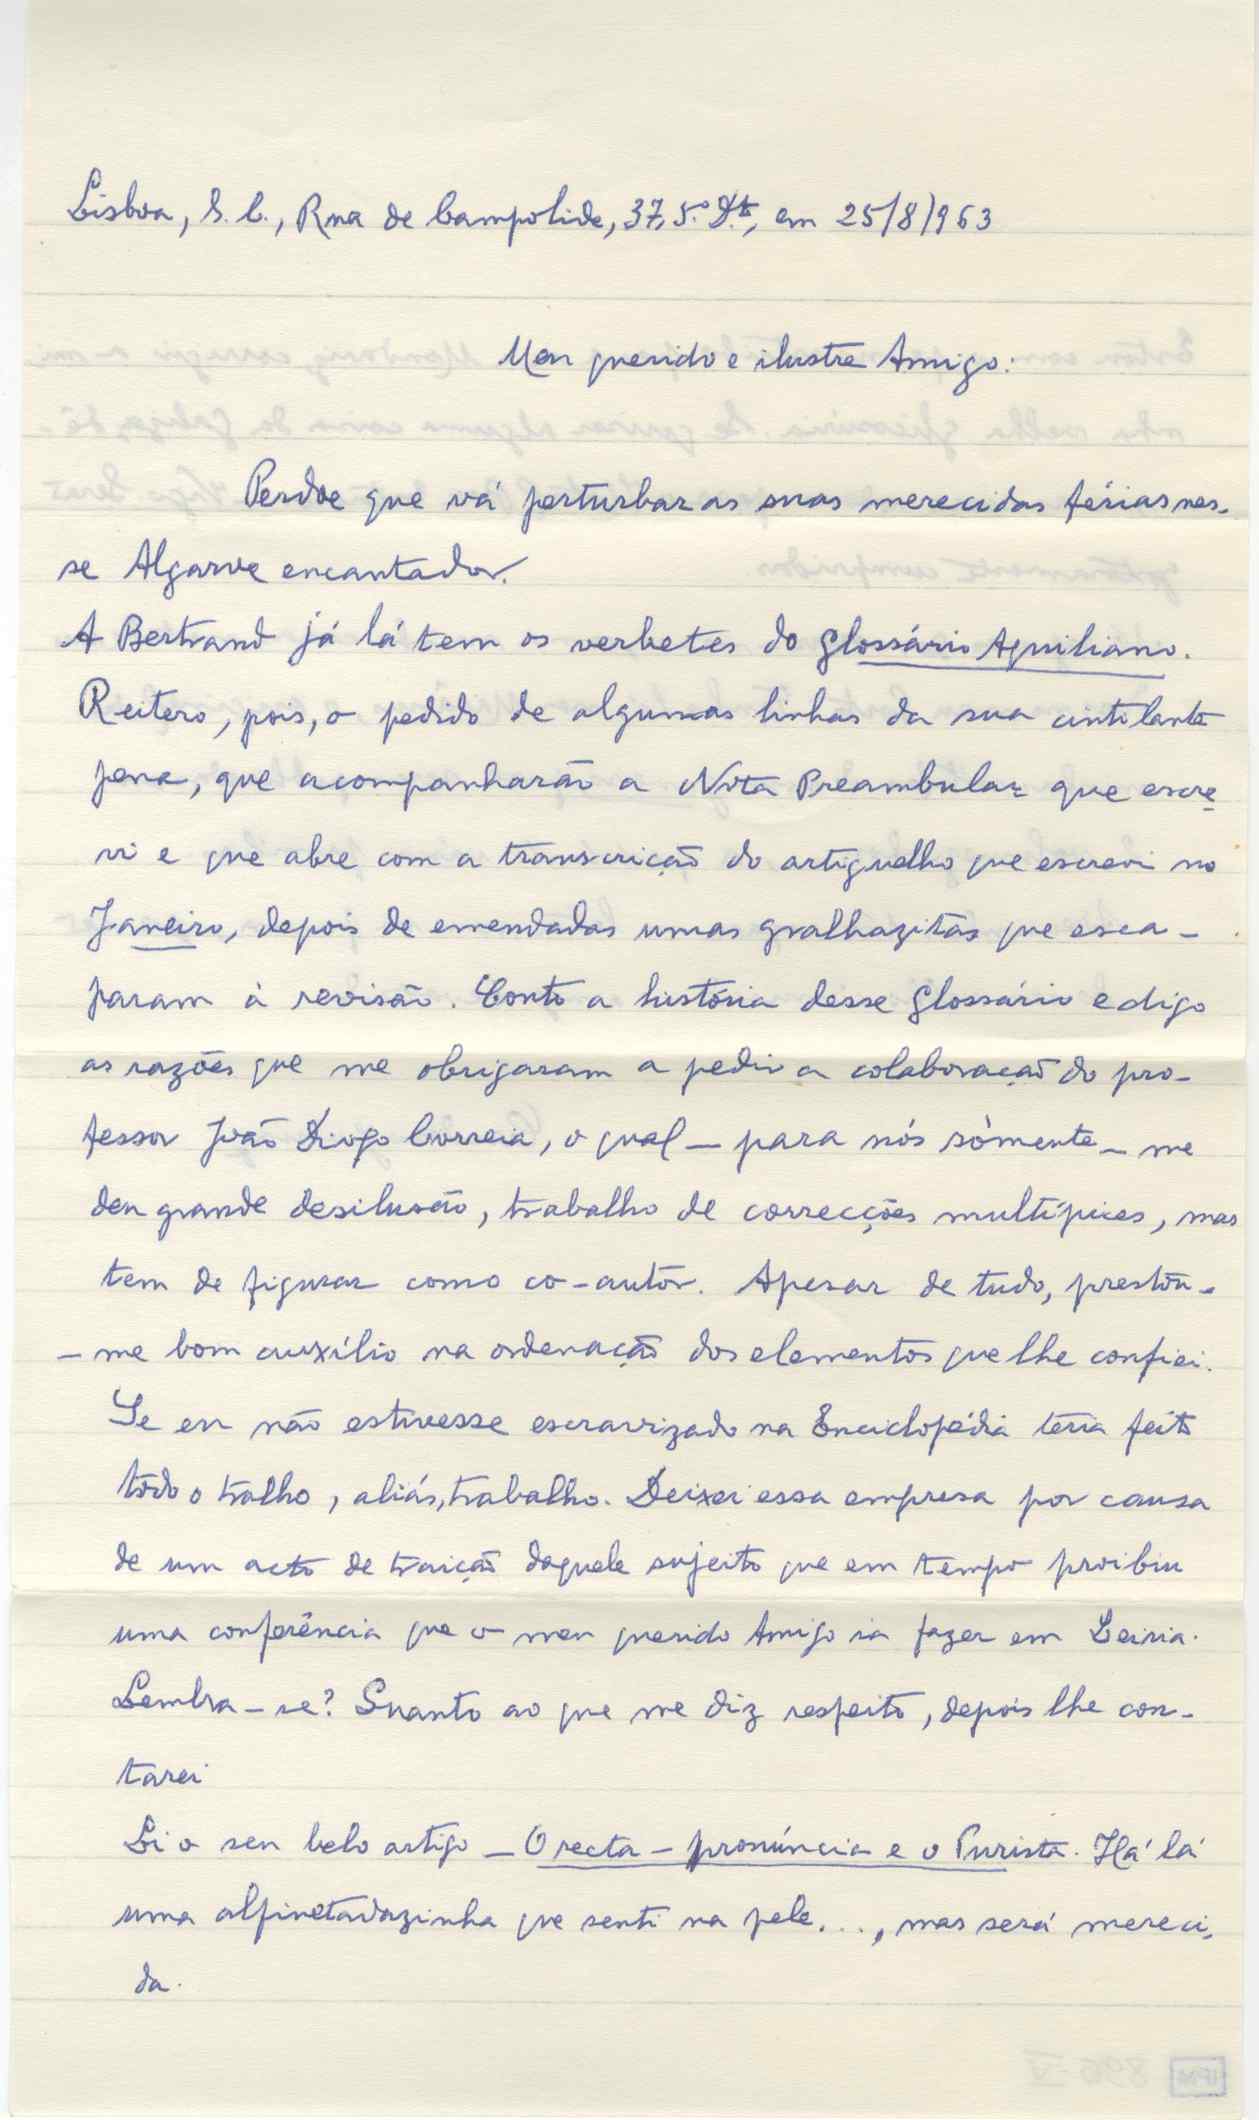 Lisboa, S. C., Rua de Campolide, 37, 5.º D.to, em 25/8/963
Meu querido e ilustre Amigo:
Perdoe que vá perturbar as suas merecidas férias nes-
se Algarve encantador.
A Bertrand já lá tem os verbetes do Glossário Aquiliano.
Reitero, pois, o pedido de algumas linhas da sua cintilante
pena, que acompanharão a Nota Preambular que escre-
vi e que abre com a transcrição do artiguelho que escrevi no
Janeiro, depois de emendadas umas gralhazitas que esca-
param à revisão. Conto a história desse Glossário e digo
as razões que me obrigaram a pedir a colaboração do pro-
fessor João Diogo Correia, o qual — para nós sòmente — me
deu grande desilusão, trabalho de correcções multíplices, mas
tem de figurar como co-autor. Apesar de tudo, prestou-
-me bom auxílio na ordenação dos elementos que lhe confiei.
Se eu não estivesse escravizado na Enciclopédia teria feito
todo o tralho, aliás, trabalho. Deixei essa empresa por causa
de um acto de traição daquele sujeito que em tempo proibiu
uma conferência que o meu querido Amigo ia fazer em Leiria.
Lembra-se? Quanto ao que me diz respeito, depois lhe con-
tarei
Li o seu belo artigo — O recta-pronúncia e o Purista. Há lá
uma alfinetadazinha que senti na pele..., mas será mereci-
da.
IPM